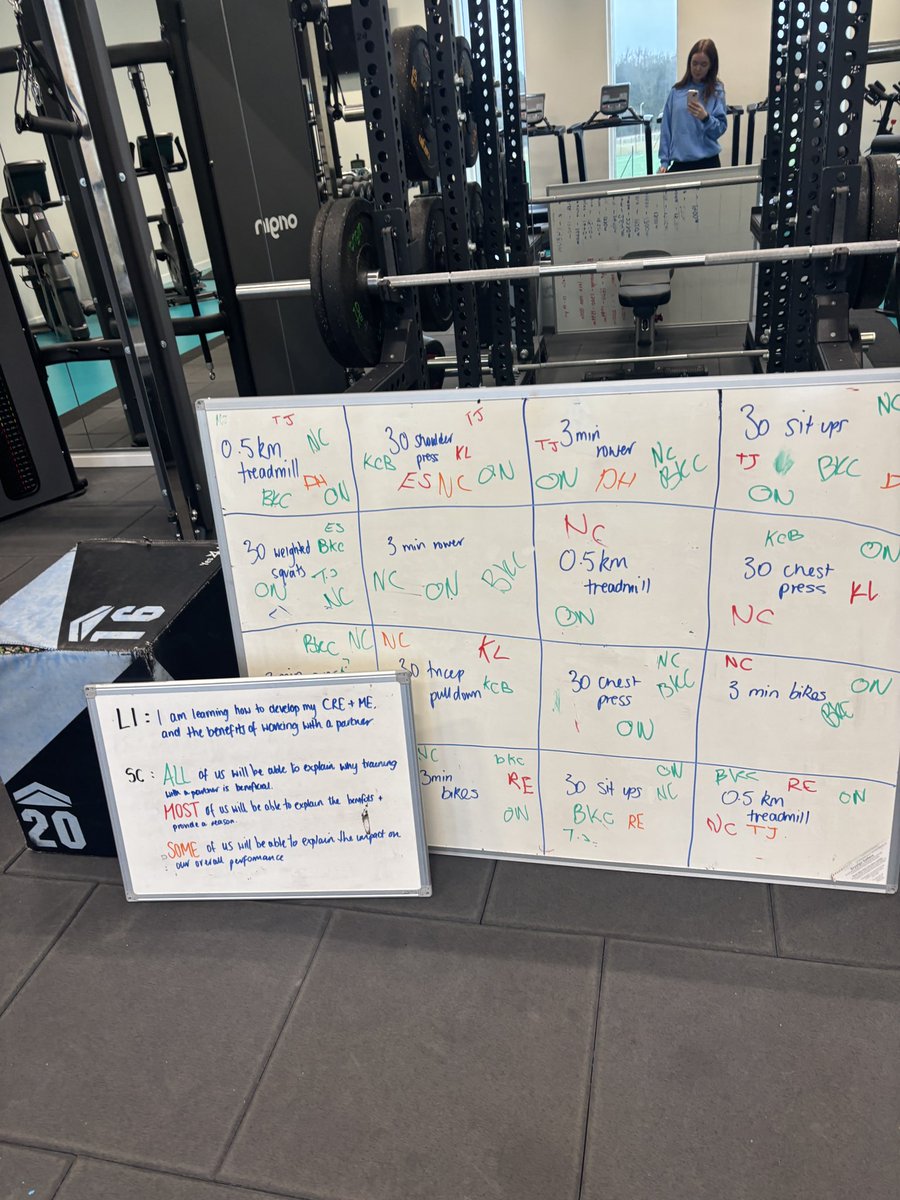 nigno
TJ
0.5km
treadmill
NC
DH
BKC
ON
TJ
30 shoulder
press
KL
KCB
ES
NC
ON
3 min
rower
TJ
NC
BKC
ON
DH
30 sit ups
NC
TJ
BKC
ON
ES
30 weighted
squats
BKC
ON
T.J
NC
3 min rower
NC
ON
BKC
NC
0.5km
treadmill
ON
KCB
ON
30 chest
press
KL
NC
BKC NC
NC
KL
30 tricep
pull down
KCB
30 chest
press
NC
BKC
ON
NC
3 min bikes
ON
BKC
NC
bkc
3min
bikes
RE
ON
30 sit ups
ON
NC
BKC
RE
T.J
BKC
RE
0.5 km
treadmill
ON
NC TJ
LI: I am learning how to develop my CRE + ME,
and the benefits of working with a partner
SC: ALL of us will be able to explain why training
with a partner is beneficial.
MOST of us will be able to explain the benefits +
provide a reason.
SOME of us will be able to explain the impact on
our overall performance
16
20